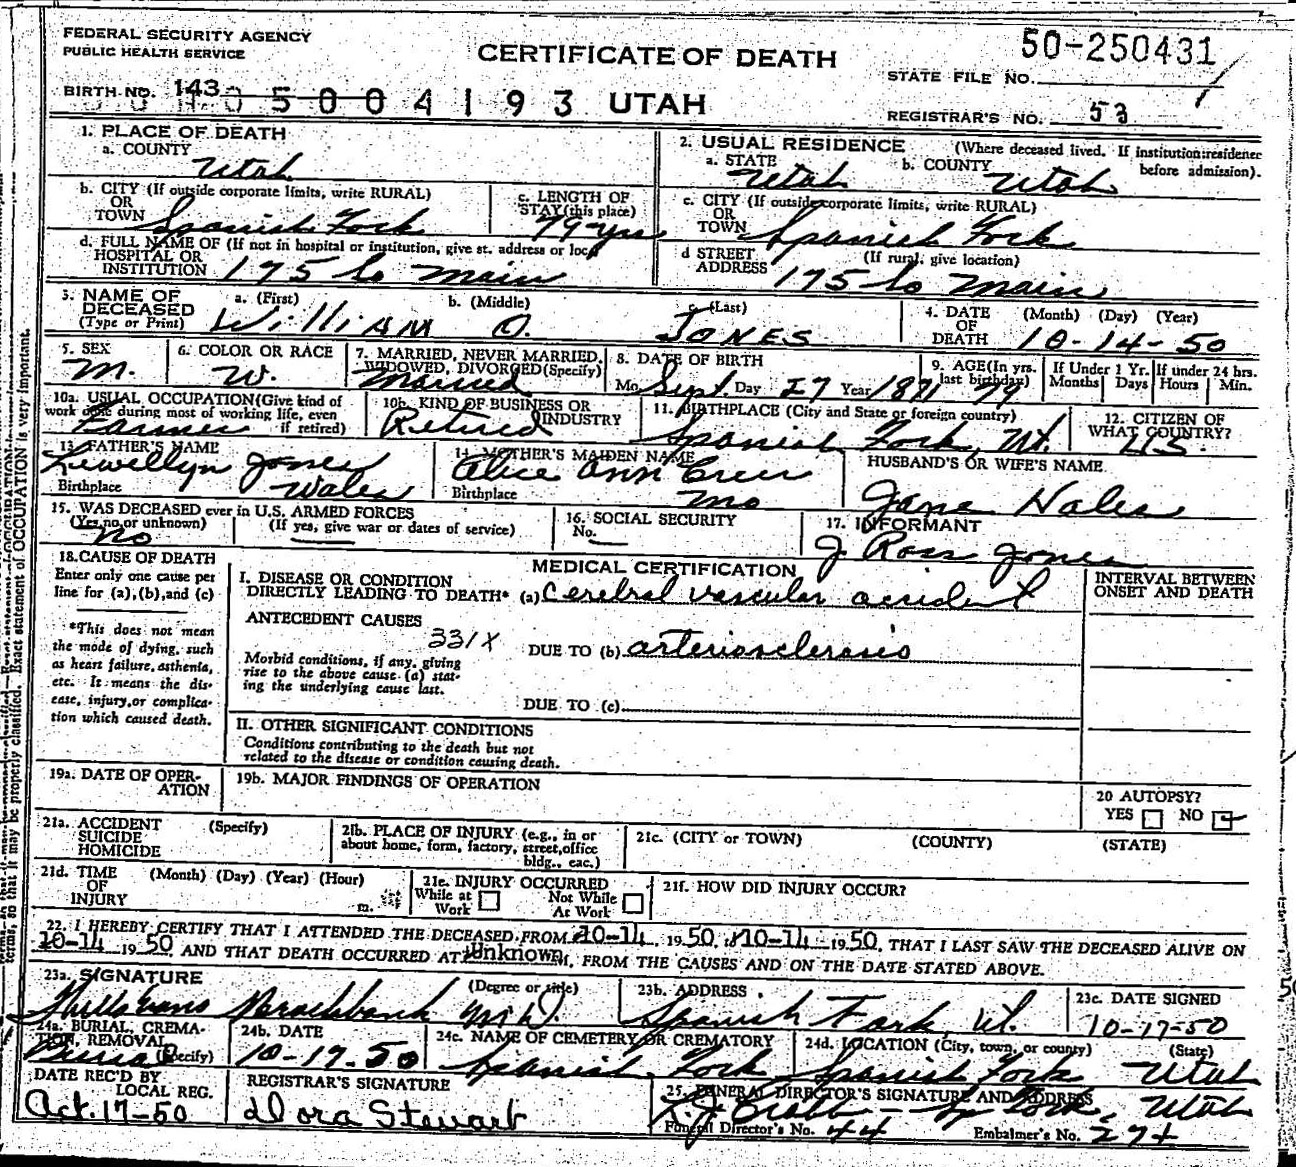 FEDERAL SECURITY AGENCY
PUBLIC HEALTH SERVICE
CERTIFICATE OF DEATH
50-250431
STATE FILE NO.
BIRTH NO. 143
5004193 UTAH
REGISTRAR'S NO. 53
1. PLACE OF DEATH
a. COUNTY
Utah
2. USUAL RESIDENCE (Where deceased lived. If institution:residence before admission).
a. STATE Utah b. COUNTY Utah
b. CITY (If outside corporate limits, write RURAL)
OR
TOWN Spanish Fork
c. LENGTH OF
STAY (this place)
79 yrs
c. CITY (If outside corporate limits, write RURAL)
OR
TOWN Spanish Fork
d. FULL NAME OF (If not in hospital or institution, give st. address or loc.
HOSPITAL OR
INSTITUTION 175 So Main
d STREET (If rural, give location)
ADDRESS 175 So Main
3. NAME OF DECEASED (Type or Print)
a. (First) b. (Middle) c. (Last)
William O. JONES
4. DATE OF DEATH (Month) (Day) (Year)
10-14-50
5. SEX
M.
6. COLOR OR RACE
W.
7. MARRIED, NEVER MARRIED,
WIDOWED, DIVORCED(Specify)
Married
8. DATE OF BIRTH
Mo. Sept. Day 27 Year 1871
9. AGE(In yrs. last birthday) 79
If Under 1 Yr. Months Days
If under 24 hrs. Hours Min.
10a. USUAL OCCUPATION(Give kind of
work done during most of working life, even
if retired)
Farmer
10b. KIND OF BUSINESS OR
INDUSTRY
Retired
11. BIRTHPLACE (City and State or foreign country)
Spanish Fork, Ut.
12. CITIZEN OF
WHAT COUNTRY?
U.S.
13. FATHER'S NAME
Lewellyn Jones
Birthplace Wales
14. MOTHER'S MAIDEN NAME
Alice Ann Creer
Birthplace Mo
HUSBAND'S OR WIFE'S NAME
Jane Hales
15. WAS DECEASED ever in U.S. ARMED FORCES
(Yes, no, or unknown) (If yes, give war or dates of service)
No
16. SOCIAL SECURITY
No.
17. INFORMANT
J. Ross Jones
18. CAUSE OF DEATH
Enter only one cause per
line for (a),(b),and (c)
*This does not mean
the mode of dying, such
as heart failure, asthenia,
etc. It means the dis-
ease, injury,or complica-
tion which caused death.
MEDICAL CERTIFICATION
INTERVAL BETWEEN
ONSET AND DEATH
I. DISEASE OR CONDITION
DIRECTLY LEADING TO DEATH* (a) Cerebral vascular accident
ANTECEDENT CAUSES
331X
DUE TO (b) arteriosclerosis
Morbid conditions, if any, giving
rise to the above cause (a) stat-
ing the underlying cause last.
DUE TO (c)
II. OTHER SIGNIFICANT CONDITIONS
Conditions contributing to the death but not
related to the disease or condition causing death.
19a. DATE OF OPER-
ATION
19b. MAJOR FINDINGS OF OPERATION
20 AUTOPSY?
YES NO
21a. ACCIDENT (Specify)
SUICIDE
HOMICIDE
21b. PLACE OF INJURY (e.g., in or
about home, form, factory, street,office
bldg., eac.)
21c. (CITY or TOWN) (COUNTY) (STATE)
21d. TIME (Month) (Day) (Year) (Hour)
OF
INJURY m.
21e. INJURY OCCURRED
While at Work
Not While At Work
21f. HOW DID INJURY OCCUR?
22. I HEREBY CERTIFY THAT I ATTENDED THE DECEASED FROM 10-14, 1950, 10-14-1950, THAT I LAST SAW THE DECEASED ALIVE ON
10-14 1950 AND THAT DEATH OCCURRED AT Unknown M, FROM THE CAUSES AND ON THE DATE STATED ABOVE.
23a. SIGNATURE (Degree or title)
M.D.
23b. ADDRESS
Spanish Fork, Ut.
23c. DATE SIGNED
10-17-50
24a. BURIAL, CREMA-
TION, REMOVAL
(Specify)
Burial
24b. DATE
10-17-50
24c. NAME OF CEMETERY OR CREMATORY
Spanish Fork
24d. LOCATION (City, town, or county) (State)
Spanish Fork Utah
DATE REC'D BY
LOCAL REG.
Oct. 17-50
REGISTRAR'S SIGNATURE
Dora Stewart
25. FUNERAL DIRECTOR'S SIGNATURE AND ADDRESS
Sp Fork, Utah
Funeral Director's No. 44 Embalmer's No.